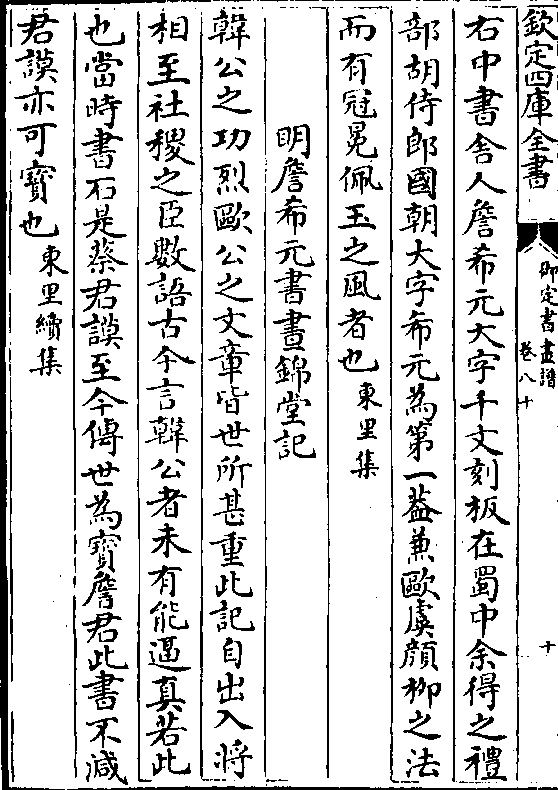 欽定四庫全書
御定書畫譜
卷八十
十
右中書舍人詹希元大字千文刻板在蜀中余得之禮
部胡侍郎國朝大字希元為第一葢兼歐虞顔柳之法
而有冠冕佩玉之風者也東里集
明詹希元書晝錦堂記
韓公之功烈歐公之文章皆世所甚重此記自出入將
相至社稷之臣數語古今言韓公者未有能逼真若此
也當時書石是蔡君謨至今傳世為寶詹君此書不減
君謨亦可寶也東里續集